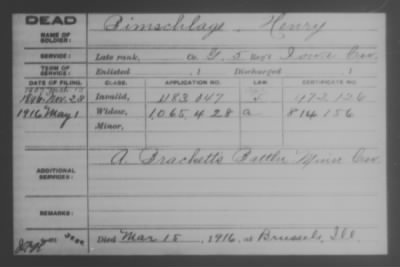 DEAD
NAME OF SOLDIER: Pimschlage, Henry
SERVICE: Late rank, Co. G, 5 Reg't Iowa Cav.
TERM OF SERVICE: Enlisted , 1 Discharged , 1
DATE OF FILING. CLASS. APPLICATION NO. LAW. CERTIFICATE NO.
Nov. 28 Invalid, 483 047 472 126
1916 May 1 Widow, 1065 428 a 814 156
Minor,
ADDITIONAL SERVICES: A Bracketts Battn Minn Cav.
REMARKS:
Died Mar 15, 1916, at Brussels, Ill.